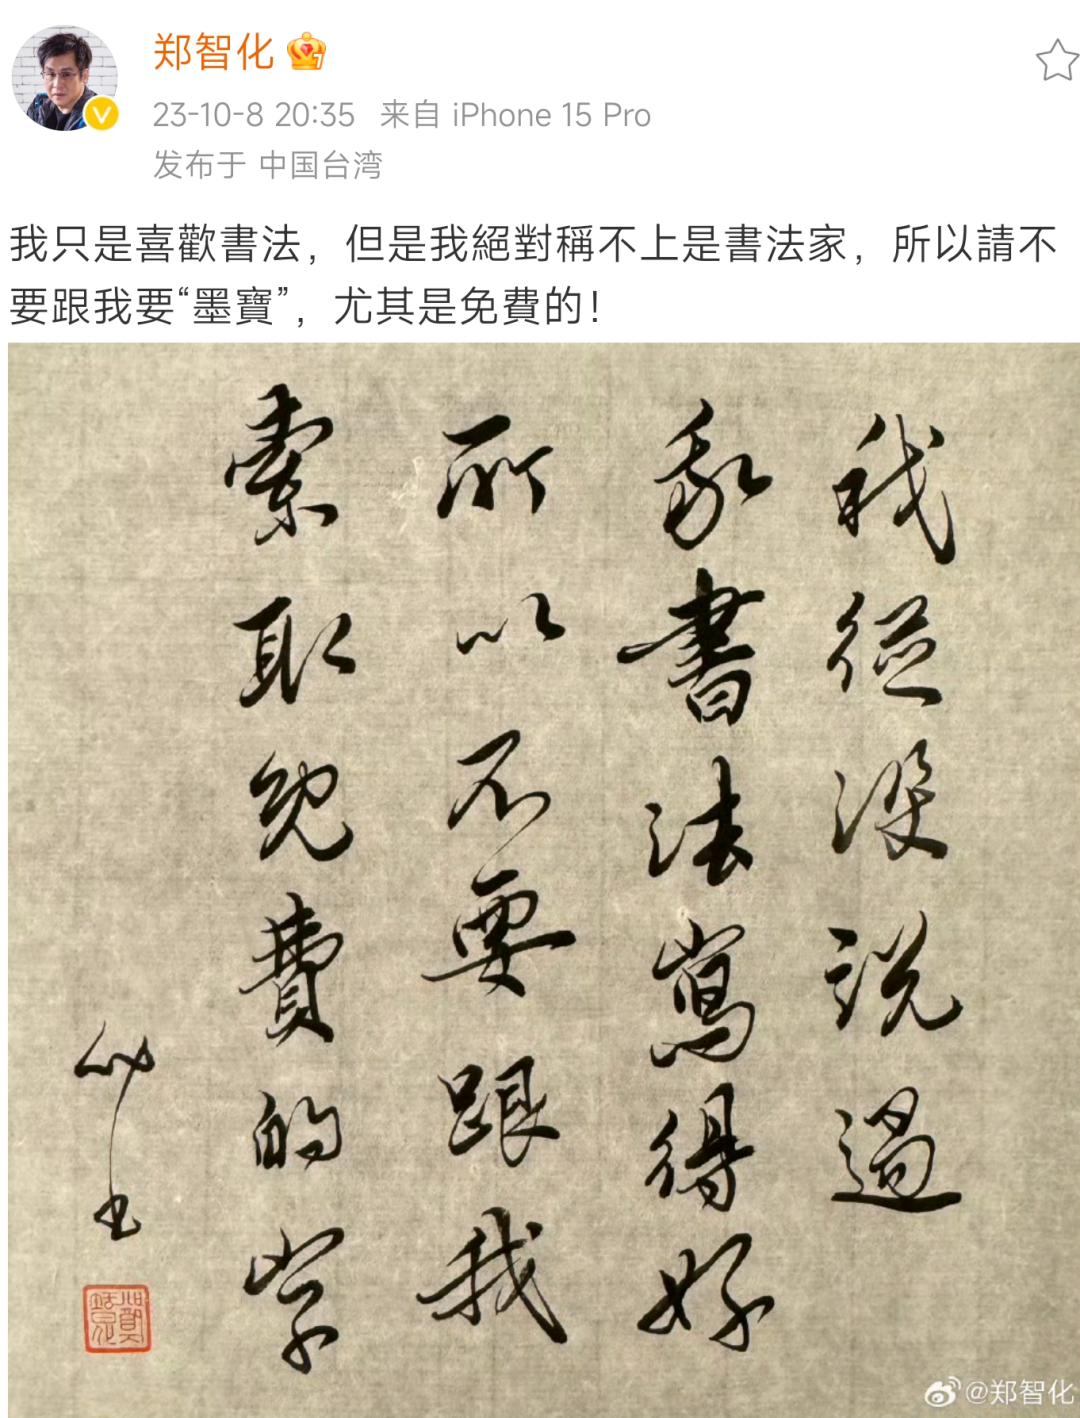 郑智化
23-10-8 20:35 来自 iPhone 15 Pro
发布于 中国台湾
我只是喜歡書法，但是我絕對稱不上是書法家，所以請不
要跟我要“墨寶”，尤其是免費的！
我從沒説過
我書法寫得好
所以不要跟我
索取免費的字
@郑智化